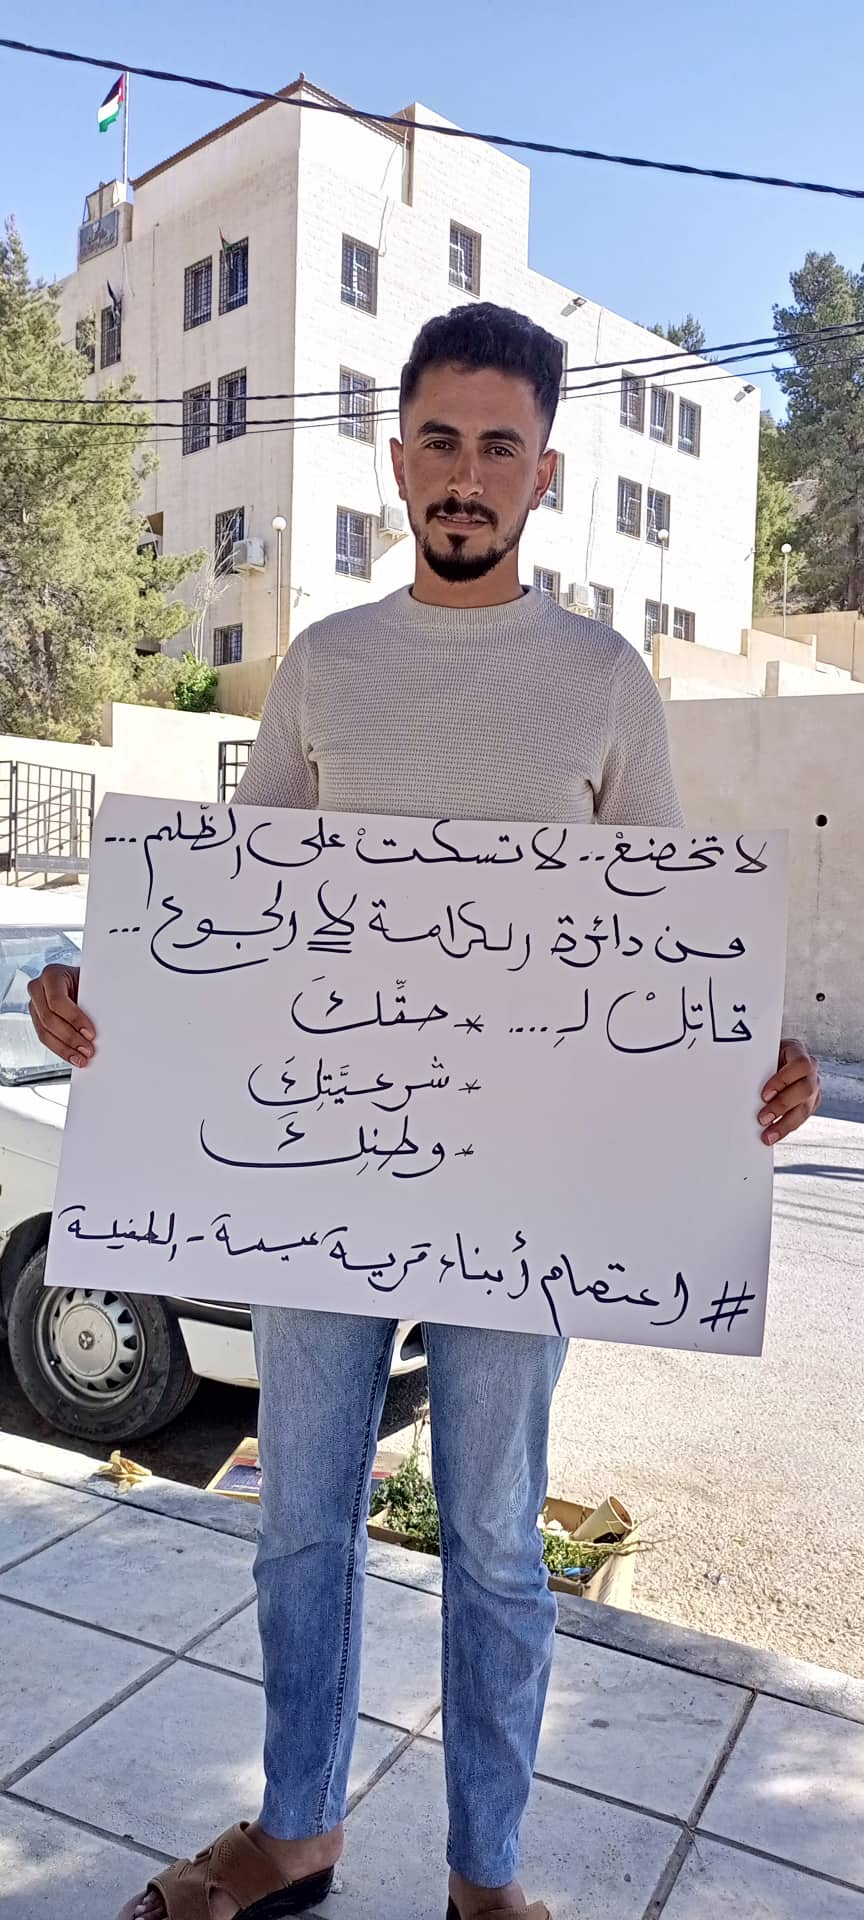 لا تخضعْ.. لا تسكتْ على الظّلم ...
من دائرة الكرامة لا الجوع ...
قاتِلْ لـِ .... * حقِّكَ
* شرعيَّتِكَ
* وطنِكَ
# اعتصام أبناء قرية عيمة - الطفيلة